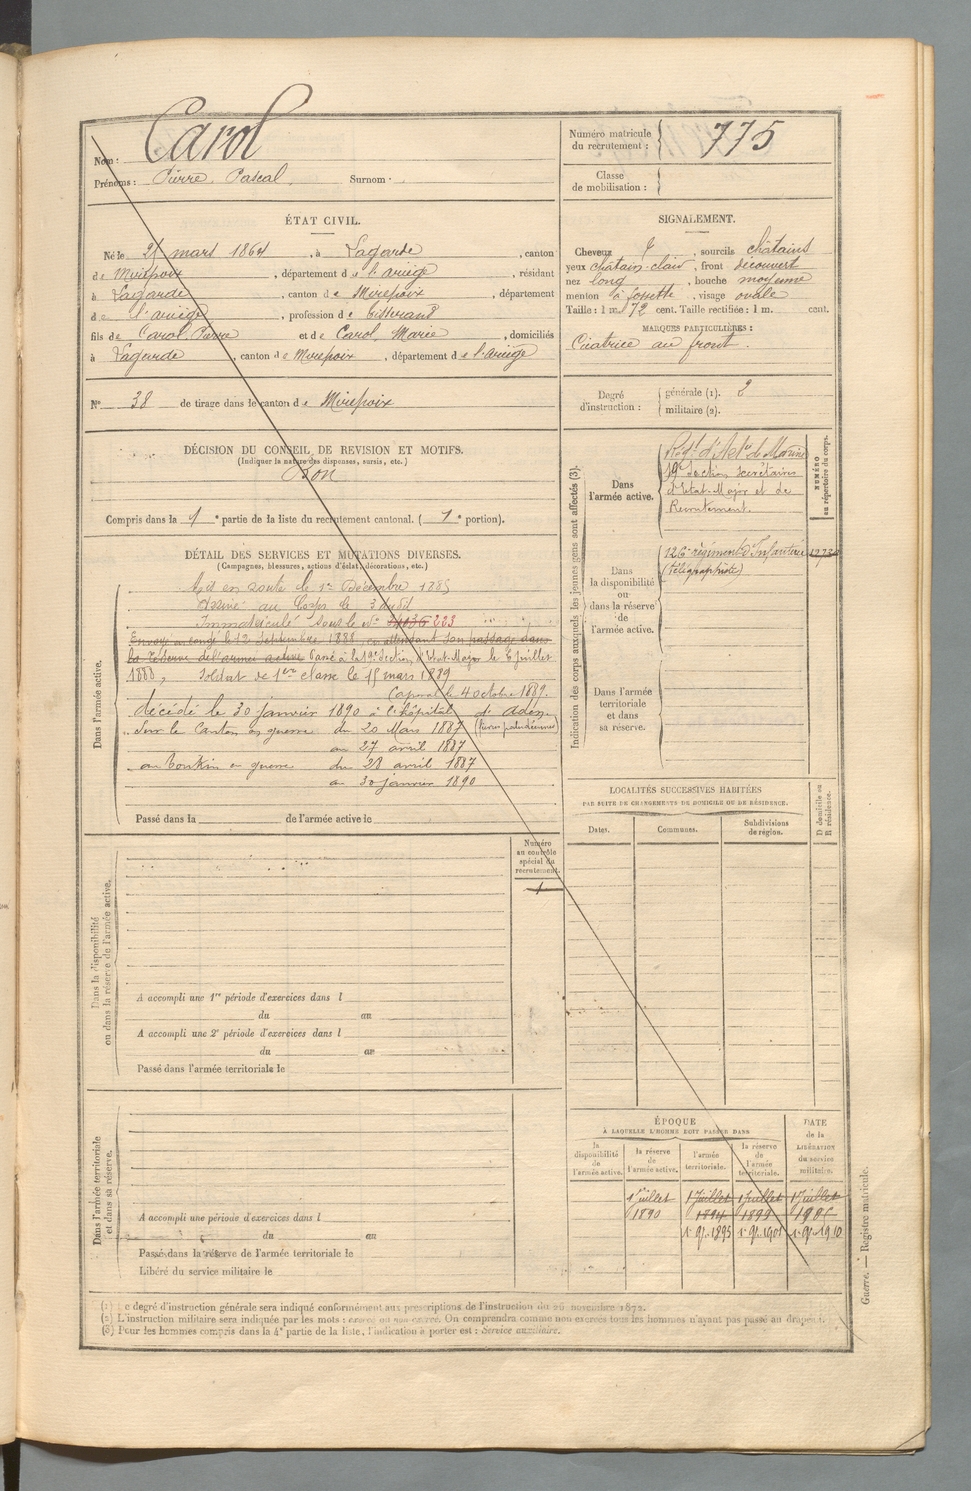 Nom : Carol
Prénoms : Pierre Pascal Surnom :
Numéro matricule
du recrutement : 775
Classe
de mobilisation :
ÉTAT CIVIL.
Né le mars 1864, à Lagarde, canton
de Mirepoix, département de l'ariège, résidant
à Lagarde, canton de Mirepoix, département
de l'ariège, profession de tisserand
fils de Carol Pierre et de Carol, Marie, domiciliés
à Lagarde, canton de Mirepoix, département de l'ariège
N° 38 de tirage dans le canton de Mirepoix
SIGNALEMENT.
Cheveux, sourcils châtains
yeux châtain-clair, front découvert
nez long, bouche moyenne
menton à fossette, visage ovale
Taille : 1 m. 72 cent. Taille rectifiée : 1 m. cent.
MARQUES PARTICULIÈRES :
Cicatrice au front.
Degré
d'instruction :
générale (1). 2
militaire (2).
DÉCISION DU CONSEIL DE REVISION ET MOTIFS.
(Indiquer la nature des dispenses, sursis, etc.)
Bon
Compris dans la 1e partie de la liste du recrutement cantonal. (1e portion).
DÉTAIL DES SERVICES ET MUTATIONS DIVERSES.
(Campagnes, blessures, actions d'éclat, décorations, etc.)
Dans l'armée active.
Mis en route le 1er Décembre 1885
Arrivé au Corps le 3 dudit
Immatriculé sous le N° 223
Envoyé en congé le 12 Septembre 1888, en attendant son passage dans
la réserve de l'armée active Passé à la 19e Section d'Etat-Major le 6 juillet
1888, Soldat de 1ère classe le 15 mars 1889
Caporal le 4 octobre 1889.
décédé le 30 janvier 1890 à l'hôpital d'Aden
(fièvres paludéennes)
Sur le Canton en guerre du 20 Mars 1887
au 27 avril 1887
au Tonkin en guerre du 28 avril 1887
au 30 janvier 1890
Passé dans la de l'armée active le
Indication des corps auxquels les jeunes gens sont affectés (3).
Dans
l'armée active.
Régt d'Arte de Marine
19e Section secrétaires
d'Etat-Major et de
Recrutement.
NUMÉRO
au répertoire du corps.
Dans
la disponibilité
ou
dans la réserve
de
l'armée active.
126e régiment d'Infanterie
(télégraphiste)
Dans l'armée
territoriale
et dans
sa réserve.
LOCALITÉS SUCCESSIVES HABITÉES
PAR SUITE DE CHANGEMENTS DE DOMICILE OU DE RÉSIDENCE.
Dates.
Communes.
Subdivisions
de région.
D domicile ou
R résidence.
Numéro
au contrôle
spécial du
recrutement.
1
Dans la disponibilité
ou dans la réserve de l'armée active.
A accompli une 1re période d'exercices dans l
du au
A accompli une 2e période d'exercices dans l
du au
Passé dans l'armée territoriale le
Dans l'armée territoriale
et dans sa réserve.
A accompli une période d'exercices dans l
du au
Passé dans la réserve de l'armée territoriale le
Libéré du service militaire le
ÉPOQUE
À LAQUELLE L'HOMME DOIT PASSER DANS
la
disponibilité
de
l'armée active.
la réserve
de
l'armée active.
l'armée
territoriale.
la réserve
de
l'armée
territoriale.
DATE
de la
LIBÉRATION
du service
militaire.
1 Juillet 1 Juillet 1 Juillet 1 Juillet
1890 1894 1899 1905
1895 1901 1910
(1) Le degré d'instruction générale sera indiqué conformément aux prescriptions de l'instruction du 26 novembre 1872.
(2) L'instruction militaire sera indiquée par les mots : exercé ou non exercé. On comprendra comme non exercés tous les hommes n'ayant pas passé au drapeau.
(3) Pour les hommes compris dans la 4e partie de la liste, l'indication à porter est : Service auxiliaire.
Guerre. — Registre matricule.